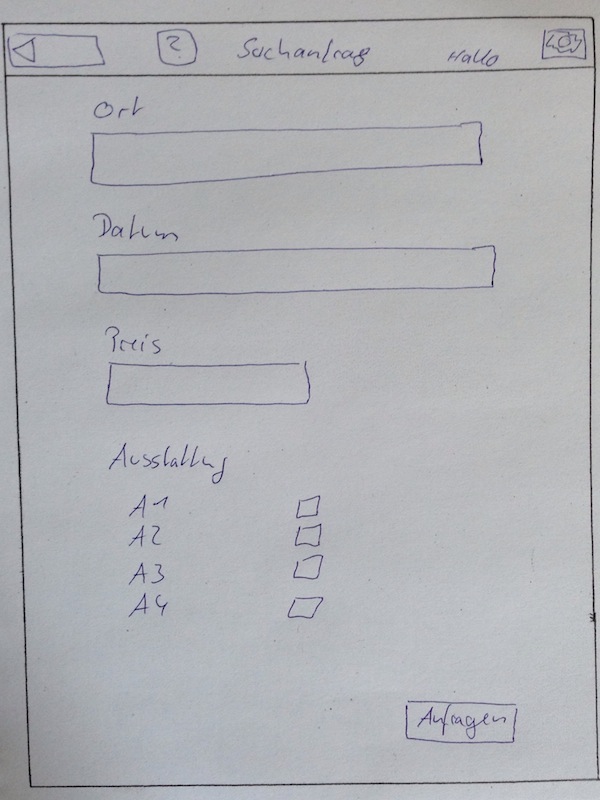 ? Suchantrag Hallo
Ort
Datum
Preis
Ausstattung
A1
A2
A3
A4
Anfragen